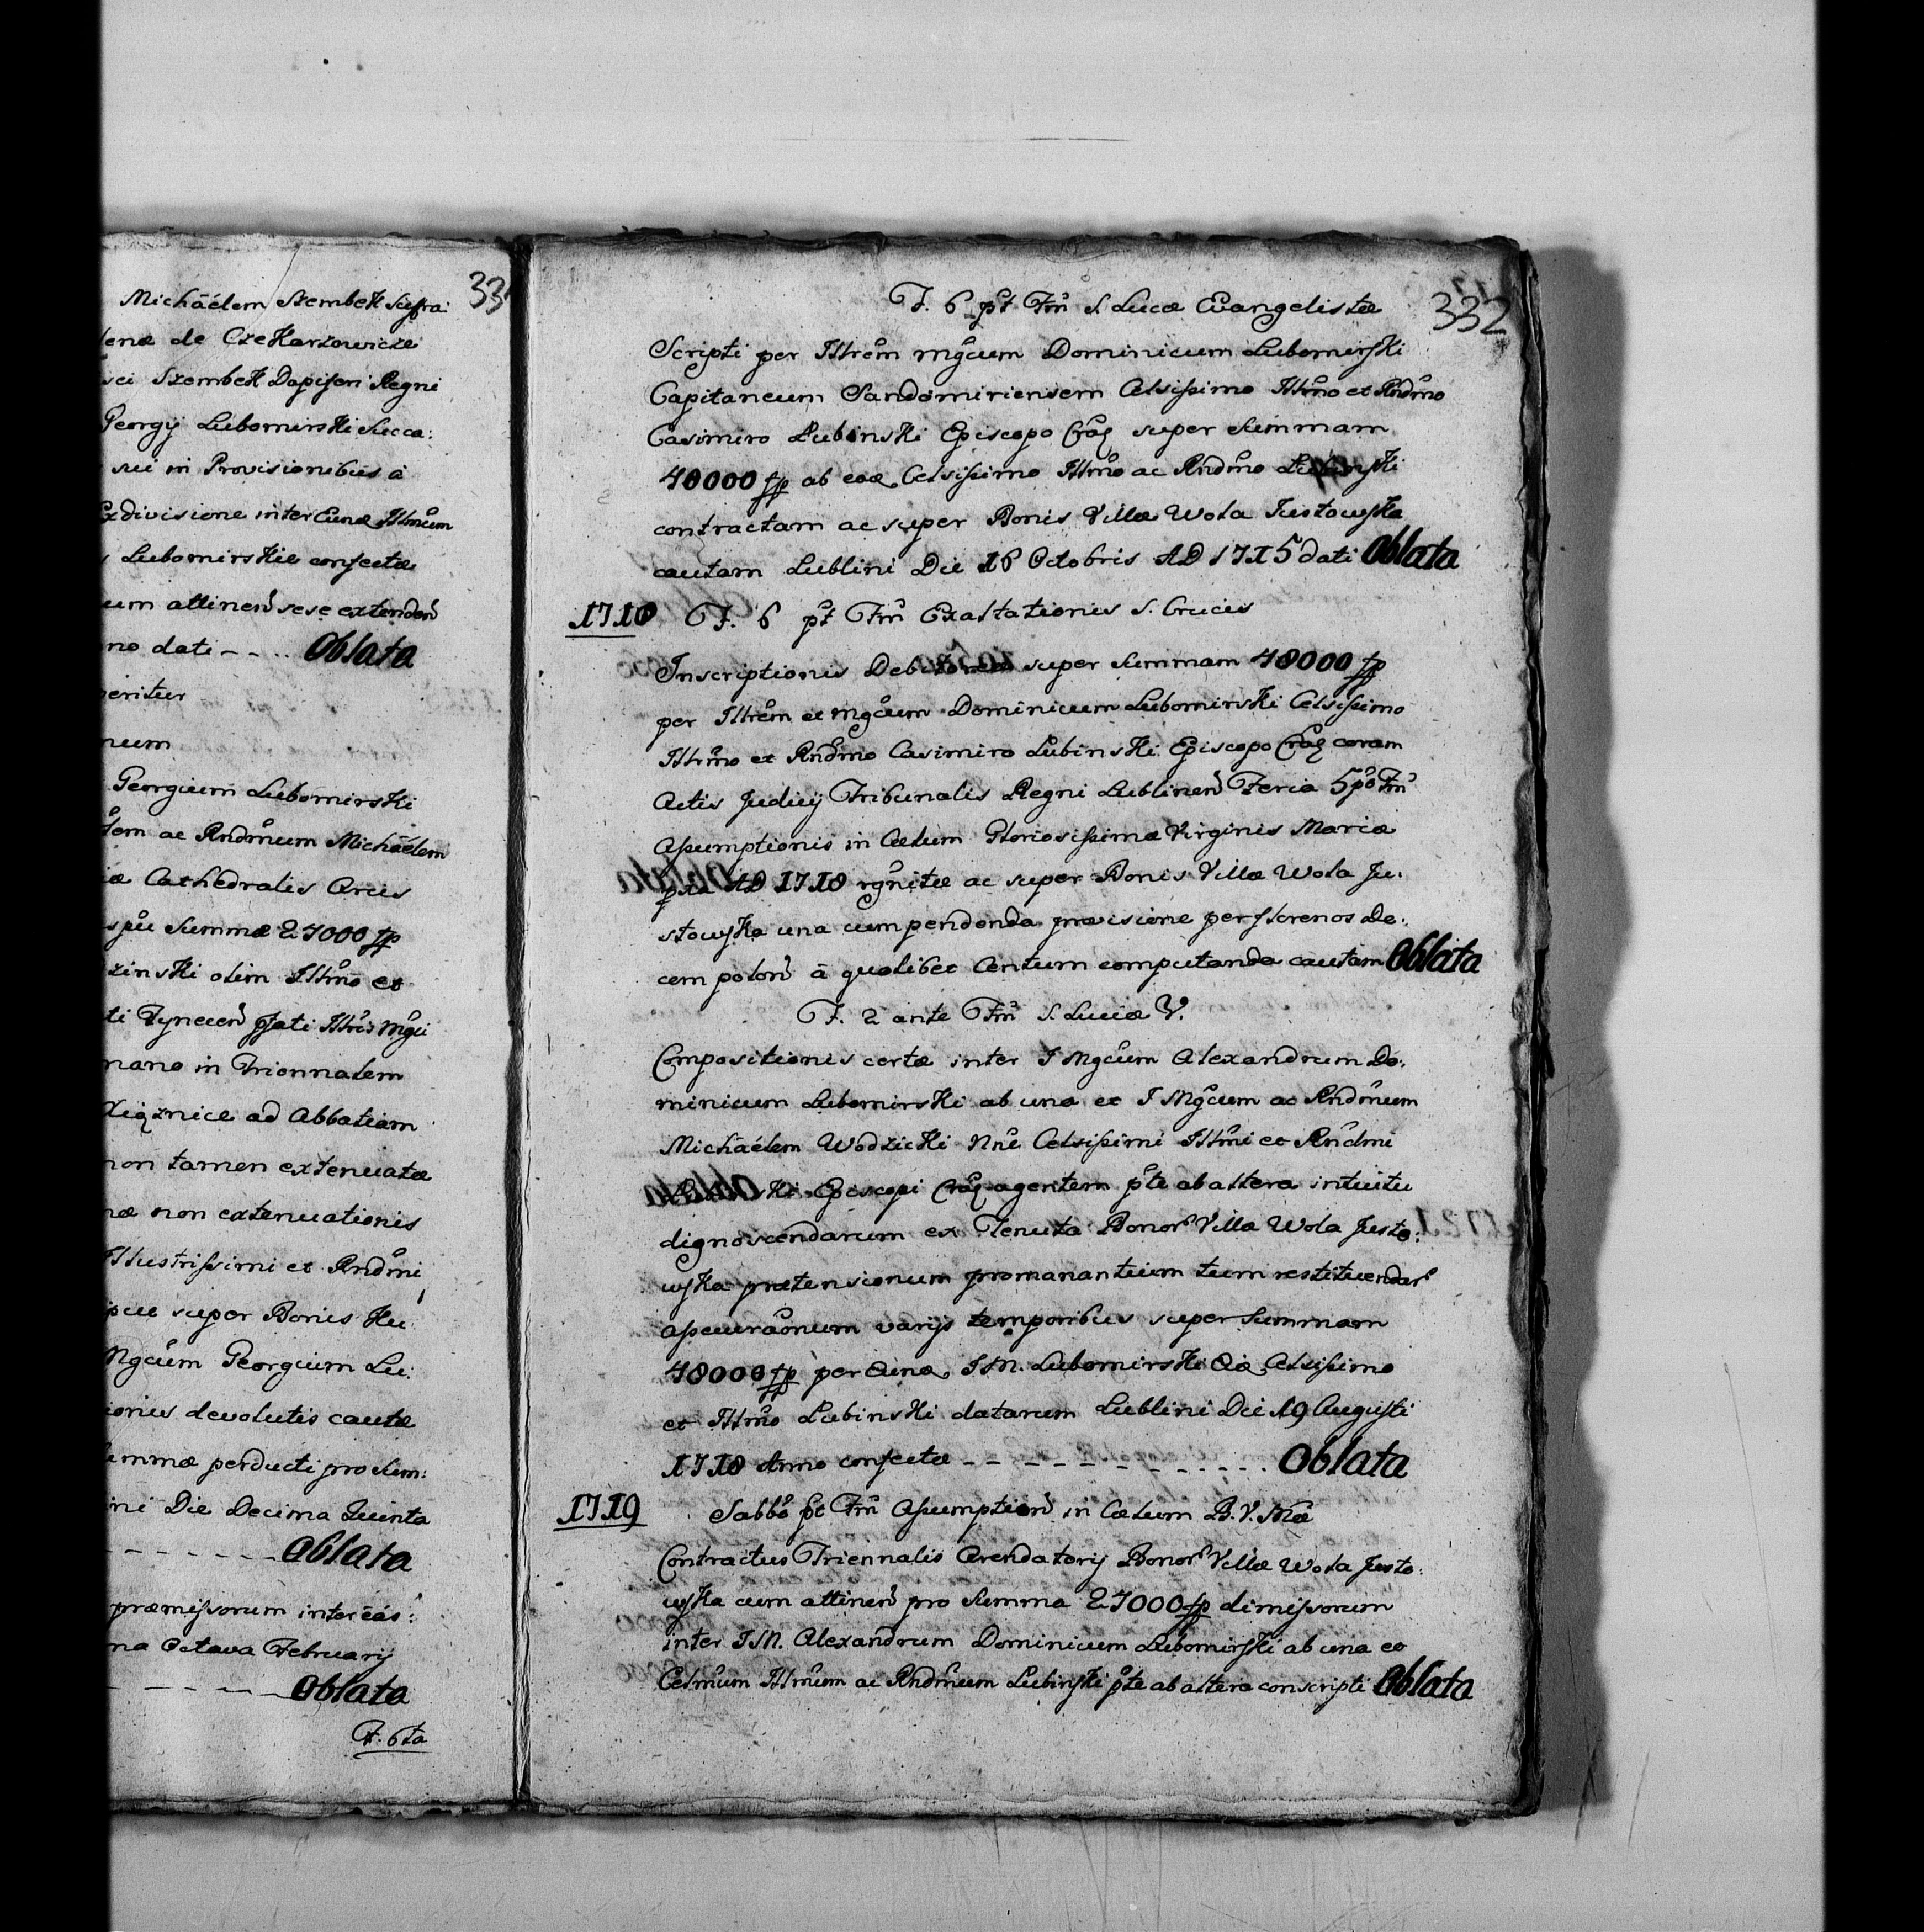 Michäelem Szembek Suffra:
enæ de Czekarzowicze
sci Szembek Dapiferi Regni
Georgij Lubomirski Succa:
sui in Provisionibus à
Exdivisione inter Eund Illmum
Lubomirskie confectæ
um attineñ sese extendeñ
no dati - - .. Oblata
eritur
num
Georgium Lubomirski
em ac Rndmum Michäelem
iæ Cathedralis Arcis
spu Summæ 27000 fp
zinski olim Illmo et
ti Tynecen
mano in Triennalem
Xiąznice ad Abbatiam
non tamen extenuatæ
næ non extenuationis
Illustrissimi et Rndmi
pcu super Bonis Ru
Mgcum Georgium Lu:
ionis devolutis cautæ
ummæ perducti pro Sum:
ini Die Decima Quinta
- - - - - - - Oblata
præmissorum inter eas:
ma Octava Februarij
- - - - - Oblata
F: 6ta
33
332
F. 6 pt Fm S Lucæ Evangelistæ
Scripti per Illrem mgcum Dominicum Lubomirski
Capitaneum Sandomiriensem Celsissimo Illmo et Rndmo
Casimiro Lubinski Episcopo Crac super Summam
48000 fp ab eod Celsissimo Illmo ac Rndmo Lubinski
contractam ac super Bonis Villæ Wola Justowska
cautam Lublini Die 16 Octobris AD 1715 dati Oblata
1718 F. 6 pt Fm Exaltationis S. Crucis
Inscriptionis Debitoreæ super Summam 48000 fp
per Illrem et mgcum Dominicum Lubomirski Celsissimo
Illmo et Rndmo Casimiro Lubinski Episcopo Crac coram
Actis Judicij Tribunalis Regni Lublineñ Feria 5 po Fm
Assumptionis in Cælum Gloriosissimæ Virginis Mariæ
AD 1718 rgnitæ ac super Bonis Villæ Wola Ju:
stowska una cum pendenda provisione per florenos De:
cem poloñ à quolibet Centum computanda cautam Oblata
F. 2 ante Fm S. Luciæ V.
Compositionis certæ inter I Mgcum Alexandrum Do:
minicum Lubomirski ab una et I Mgcum ac Rndmum
Michäelem Wodzicki Nne Celsissimi Illmi et Rndmi
Lubinski Episcopi Crac agentem pte ab altera intuitu
dignoscendarum ex Tenuta Bonor Villæ Wola Justo:
wska prætensionum promanantium tum restituendar
assecuraonum varijs temporibus super Summam
48000 fp per Eund I M. Lubomirski Celsissimo
et Illmo Lubinski datarum Lublini Die 19 Augusti
1718 Anno confectæ - - - - - - - - - - - Oblata
1719 Sabbo pt Fm Assumptioñ in Cælum B. V. Mæ
Contractus Triennalis Arendatorij Bonor Villæ Wola Justo:
wska cum attineñ pro Summa 27000 fp dimissorum
inter I M. Alexandrum Dominicum Lubomirski ab una et
Celmum Illmum ac Rndmum Lubinski pte ab altera conscripti Oblata